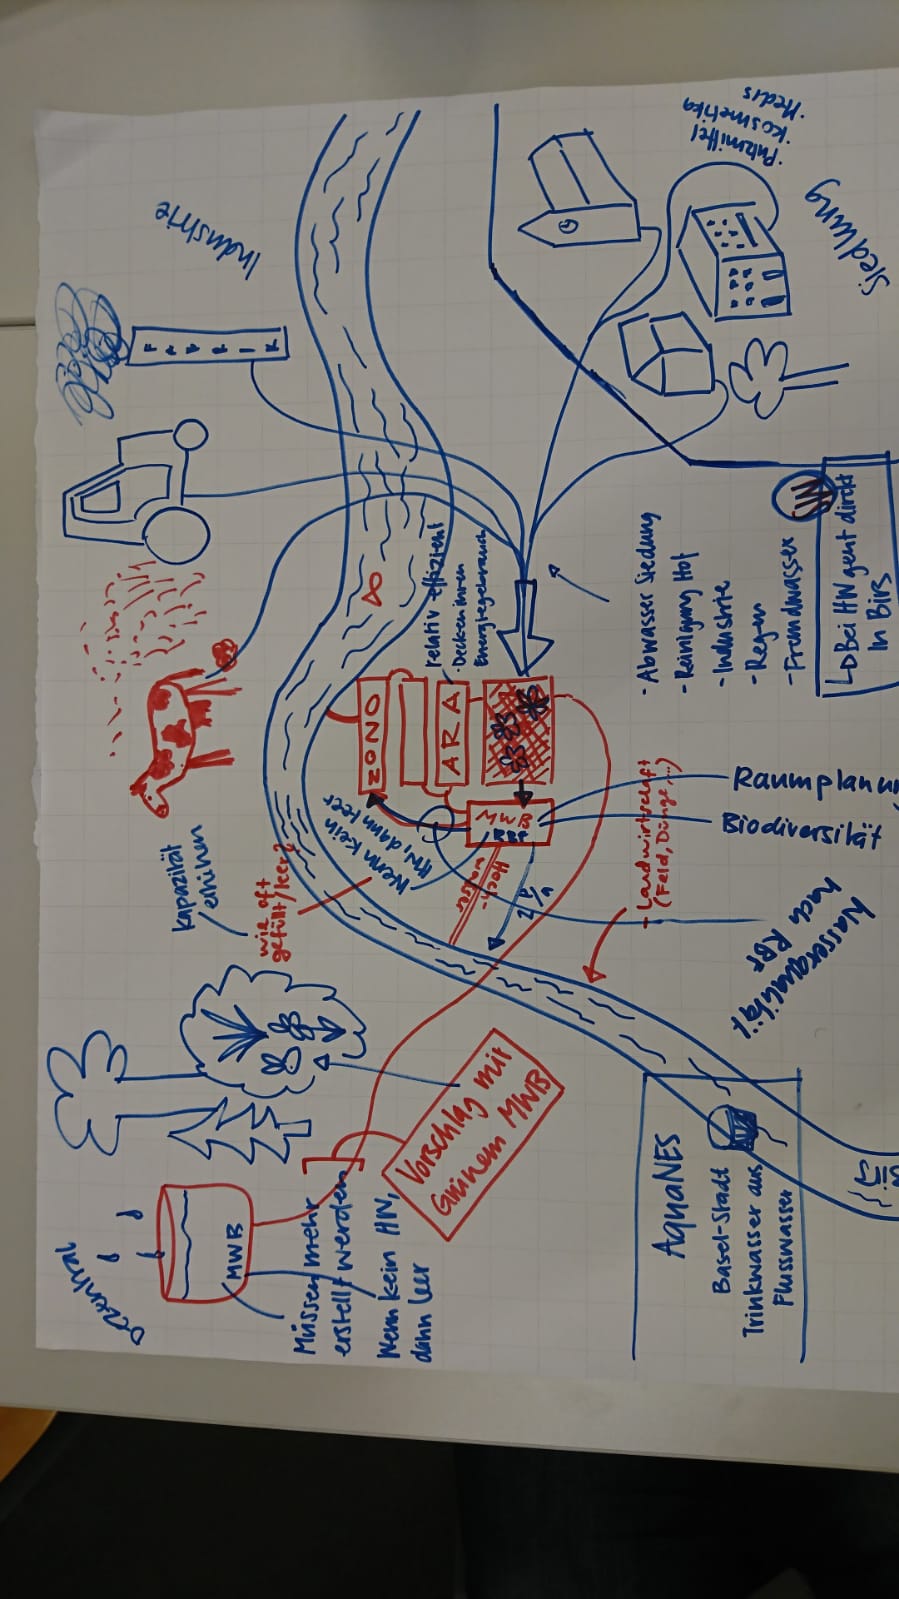 Industrie
FABRIK
Siedlung
·Putzmittel
·Kosmetika
·Medis
- Abwasser Siedlung
- Reinigung Hof
- Industrie
- Regen
- Fremdwasser
HW
↳ Bei HW geht direkt
in Birs
relativ effizient
·Decken ihren
Energiegebrauch
OZON
ARA
MWB
RBF
Hoch-
wasser
2 p/a
Wenn kein
HW, dann leer
Kapazität
erhöhen
wie oft
gefüllt/leer?
- Landwirtschaft
(Feld, Dünge, ...)
Raumplanun
Biodiversität
Wasserqualität
nach RBF
Vorschlag mit
Grünem MWB
Dezentral
MWB
Müssen mehr
erstellt werden
Wenn kein HW,
dann leer
AquaNES
Basel-Stadt
Trinkwasser aus
Flusswasser